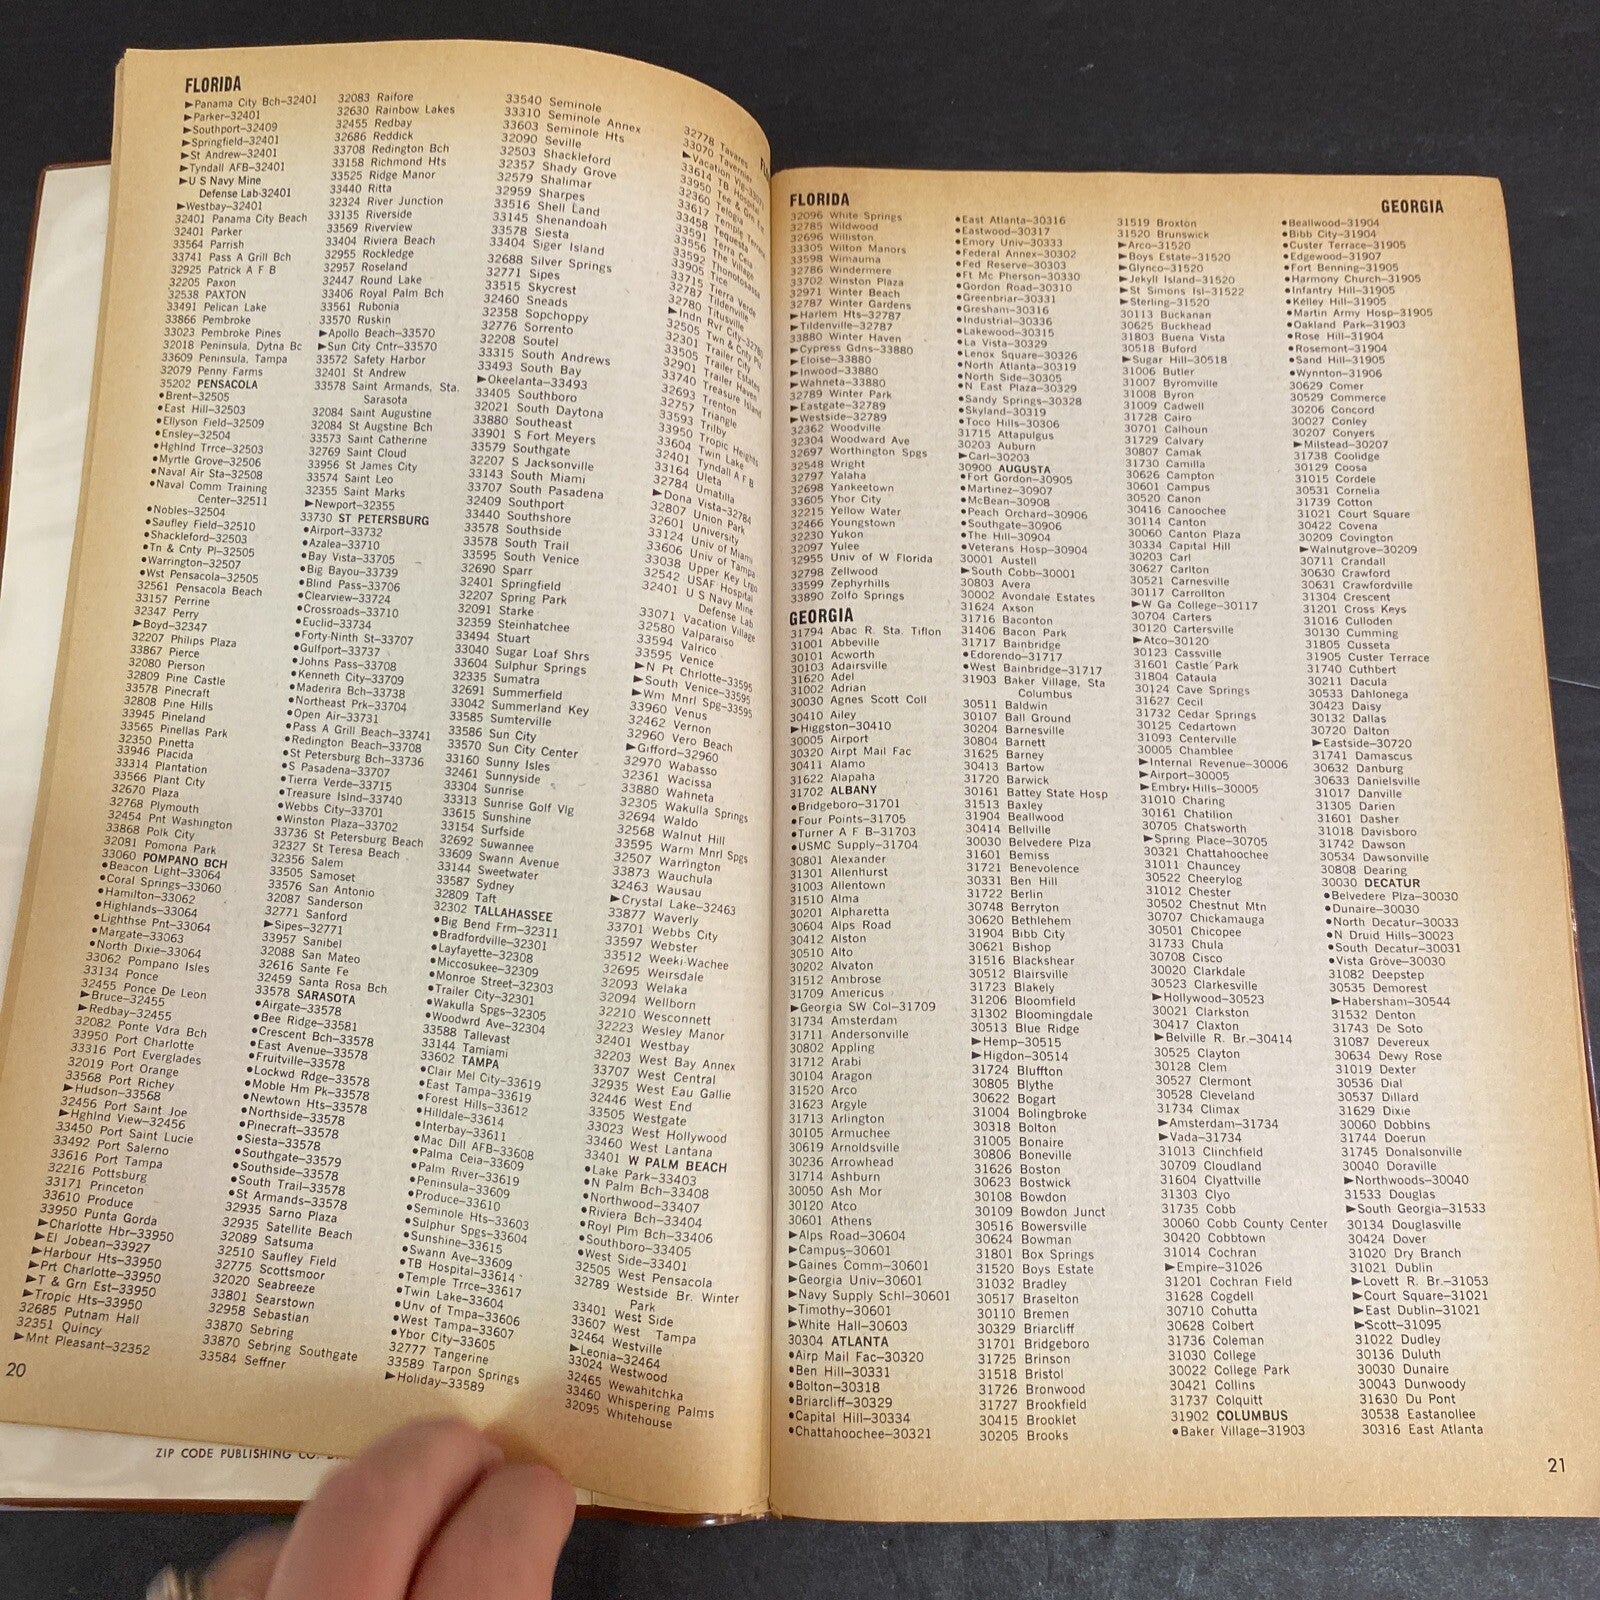 FLORIDA
►Panama City Bch–32401
►Parker–32401
►Southport–32409
►Springfield–32401
►St Andrew–32401
►Tyndall AFB–32401
►U S Navy Mine
Defense Lab-32401
►Westbay–32401
32401 Panama City Beach
32401 Parker
33564 Parrish
33741 Pass A Grill Bch
32925 Patrick A F B
32205 Paxon
32538 PAXTON
33491 Pelican Lake
33866 Pembroke
33023 Pembroke Pines
32018 Peninsula, Dytna Bc
33609 Peninsula, Tampa
32079 Penny Farms
35202 PENSACOLA
•Brent–32505
•East Hill–32503
•Ellyson Field–32509
•Ensley–32504
•Hghlnd Trrce–32503
•Myrtle Grove–32506
•Naval Air Sta–32508
•Naval Comm Training
Center–32511
•Nobles–32504
•Saufley Field–32510
•Shackleford–32503
•Tn & Cnty Pl–32505
•Warrington–32507
•Wst Pensacola–32505
32561 Pensacola Beach
33157 Perrine
32347 Perry
►Boyd–32347
32207 Philips Plaza
33867 Pierce
32080 Pierson
32809 Pine Castle
33578 Pinecraft
32808 Pine Hills
33945 Pineland
33565 Pinellas Park
32350 Pinetta
33946 Placida
33314 Plantation
33566 Plant City
32670 Plaza
32768 Plymouth
32454 Pnt Washington
33868 Polk City
32081 Pomona Park
33060 POMPANO BCH
•Beacon Light–33064
•Coral Springs–33060
•Hamilton–33062
•Highlands–33064
•Lighthse Pnt–33064
•Margate–33063
•North Dixie–33064
33062 Pompano Isles
33134 Ponce
32455 Ponce De Leon
►Bruce–32455
►Redbay–32455
32082 Ponte Vdra Bch
33950 Port Charlotte
33316 Port Everglades
32019 Port Orange
33568 Port Richey
►Hudson–33568
32456 Port Saint Joe
►Hghlnd View–32456
33450 Port Saint Lucie
33492 Port Salerno
33616 Port Tampa
32216 Pottsburg
33171 Princeton
33610 Produce
33950 Punta Gorda
►Charlotte Hbr–33950
►El Jobean–33927
►Harbour Hts–33950
►Prt Charlotte–33950
►T & Grn Est–33950
►Tropic Hts–33950
32685 Putnam Hall
32351 Quincy
►Mnt Pleasant–32352
32083 Raifore
32630 Rainbow Lakes
32455 Redbay
32686 Reddick
33708 Redington Bch
33158 Richmond Hts
33525 Ridge Manor
33440 Ritta
32324 River Junction
33135 Riverside
33569 Riverview
33404 Riviera Beach
32955 Rockledge
32957 Roseland
32447 Round Lake
33406 Royal Palm Bch
33561 Rubonia
33570 Ruskin
►Apollo Beach–33570
►Sun City Cntr–33570
33572 Safety Harbor
32401 St Andrew
33578 Saint Armands, Sta.
Sarasota
32084 Saint Augustine
32084 St Augstine Bch
33573 Saint Catherine
32769 Saint Cloud
33956 St James City
33574 Saint Leo
32355 Saint Marks
►Newport–32355
33730 ST PETERSBURG
•Airport–33732
•Azalea–33710
•Bay Vista–33705
•Big Bayou–33739
•Blind Pass–33706
•Clearview–33724
•Crossroads–33710
•Euclid–33734
•Forty-Ninth St–33707
•Gulfport–33737
•Johns Pass–33708
•Kenneth City–33709
•Maderira Bch–33738
•Northeast Prk–33704
•Open Air–33731
•Pass A Grill Beach–33741
•Redington Beach–33708
•St Petersburg Bch–33736
•S Pasadena–33707
•Tierra Verde–33715
•Treasure Islnd–33740
•Webbs City–33701
•Winston Plaza–33702
33736 St Petersburg Beach
32327 St Teresa Beach
32356 Salem
33505 Samoset
33576 San Antonio
32087 Sanderson
32771 Sanford
►Sipes–32771
33957 Sanibel
32088 San Mateo
32616 Sante Fe
32459 Santa Rosa Bch
33578 SARASOTA
•Airgate–33578
•Bee Ridge–33581
•Crescent Bch–33578
•East Avenue–33578
•Fruitville–33578
•Lockwd Rdge–33578
•Moble Hm Pk–33578
•Newtown Hts–33578
•Northside–33578
•Pinecraft–33578
•Siesta–33578
•Southgate–33579
•Southside–33578
•South Trail–33578
•St Armands–33578
32935 Sarno Plaza
32935 Satellite Beach
32089 Satsuma
32510 Saufley Field
32775 Scottsmoor
32020 Seabreeze
33801 Searstown
32958 Sebastian
33870 Sebring
33870 Sebring Southgate
33584 Seffner
33540 Seminole
33310 Seminole Annex
33603 Seminole Hts
32090 Seville
32503 Shackleford
32357 Shady Grove
32579 Shalimar
32959 Sharpes
33516 Shell Land
33145 Shenandoah
33578 Siesta
33404 Siger Island
32688 Silver Springs
32771 Sipes
33515 Skycrest
32460 Sneads
32358 Sopchoppy
32776 Sorrento
32208 Soutel
33315 South Andrews
33493 South Bay
►Okeelanta–33493
33405 Southboro
32021 South Daytona
33880 Southeast
33901 S Fort Meyers
33579 Southgate
32207 S Jacksonville
33143 South Miami
33707 South Pasadena
32409 Southport
33440 Southshore
33578 Southside
33578 South Trail
33595 South Venice
32690 Sparr
32401 Springfield
32207 Spring Park
32091 Starke
32359 Steinhatchee
33494 Stuart
33040 Sugar Loaf Shrs
33604 Sulphur Springs
32335 Sumatra
32691 Summerfield
33042 Summerland Key
33585 Sumterville
33586 Sun City
33570 Sun City Center
33160 Sunny Isles
32461 Sunnyside
33304 Sunrise
33313 Sunrise Golf Vlg
33615 Sunshine
33154 Surfside
32692 Suwannee
33609 Swann Avenue
33144 Sweetwater
33587 Sydney
32809 Taft
32302 TALLAHASSEE
•Big Bend Frm–32311
•Bradfordville–32301
•Layfayette–32308
•Miccosukee–32309
•Monroe Street–32303
•Trailer City–32301
•Wakulla Spgs–32305
•Woodwrd Ave–32304
33588 Tallevast
33144 Tamiami
33602 TAMPA
•Clair Mel City–33619
•East Tampa–33619
•Forest Hills–33612
•Hilldale–33614
•Interbay–33611
•Mac Dill AFB–33608
•Palma Ceia–33609
•Palm River–33619
•Peninsula–33609
•Produce–33610
•Seminole Hts–33603
•Sulphur Spgs–33604
•Sunshine–33615
•Swann Ave–33609
•TB Hospital–33614
•Temple Trrce–33617
•Twin Lake–33604
•Unv of Tmpa–33606
•West Tampa–33607
•Ybor City–33605
32777 Tangerine
33589 Tarpon Springs
►Holiday–33589
32778 Tavares
33070 Tavernier
33614 TB Hospital
32360 Telogia
33617 Temple Terrace
33458 Tequesta
33591 Terra Ceia
33556 The Village
33592 Thonotosassa
33905 Tice
33715 Tierra Verde
32787 Tildenville
32780 Titusville
►Indn Rvr City–32780
32505 Twn & Cnty Plz
32301 Trailer City
33505 Trailer Estates
32901 Trailer Haven
33740 Treasure Island
32693 Trenton
32757 Triangle
33593 Trilby
33950 Tropic Heights
33604 Twin Lake
32401 Tyndall A F B
33164 Uleta
32784 Umatilla
►Dona Vista–32784
32807 Union Park
32601 University
33124 Univ of Miami
33606 Univ of Tampa
33038 Upper Key Lrgo
32542 USAF Hospital
32401 U S Navy Mine
Defense Lab
33071 Vacation Village
32580 Valparaiso
33594 Valrico
33595 Venice
►N Pt Chrlotte–33595
►South Venice–33595
►Wm Mnrl Spg–33595
33960 Venus
32462 Vernon
32960 Vero Beach
►Gifford–32960
32970 Wabasso
32361 Wacissa
33880 Wahneta
32305 Wakulla Springs
32694 Waldo
32568 Walnut Hill
33595 Warm Mnrl Spgs
32507 Warrington
33873 Wauchula
32463 Wausau
►Crystal Lake–32463
33877 Waverly
33701 Webbs City
33597 Webster
33512 Weeki-Wachee
32695 Weirsdale
32093 Welaka
32094 Wellborn
32210 Wesconnett
32223 Wesley Manor
32401 Westbay
32203 West Bay Annex
33707 West Central
32935 West Eau Gallie
32446 West End
33505 Westgate
33023 West Hollywood
33460 West Lantana
33401 W PALM BEACH
•Lake Park–33403
•N Palm Bch–33408
•Northwood–33407
•Riviera Bch–33404
•Royl Plm Bch–33406
•Southboro–33405
•West Side–33401
32505 West Pensacola
32789 Westside Br. Winter
Park
33401 West Side
33607 West Tampa
32464 Westville
►Leonia–32464
33024 Westwood
32465 Wewahitchka
33460 Whispering Palms
32095 Whitehouse
20
ZIP CODE PUBLISHING CO.
FLORIDA
GEORGIA
32096 White Springs
32785 Wildwood
32696 Williston
33305 Wilton Manors
33598 Wimauma
32786 Windermere
33702 Winston Plaza
32971 Winter Beach
32787 Winter Gardens
►Harlem Hts–32787
►Tildenville–32787
33880 Winter Haven
►Cypress Gdns–33880
►Eloise–33880
►Inwood–33880
►Wahneta–33880
32789 Winter Park
►Eastgate–32789
►Westside–32789
32362 Woodville
32304 Woodward Ave
32697 Worthington Spgs
32548 Wright
32797 Yalaha
32698 Yankeetown
33605 Yhor City
32215 Yellow Water
32466 Youngstown
32230 Yukon
32097 Yulee
32955 Univ of W Florida
32798 Zellwood
33599 Zephyrhills
33890 Zolfo Springs
GEORGIA
31794 Abac R. Sta. Tifton
31001 Abbeville
30101 Acworth
30103 Adairsville
31620 Adel
31002 Adrian
30030 Agnes Scott Coll
30410 Ailey
►Higgston–30410
30005 Airport
30320 Airpt Mail Fac
30411 Alamo
31622 Alapaha
31702 ALBANY
•Bridgeboro–31701
•Four Points–31705
•Turner A F B–31703
•USMC Supply–31704
30801 Alexander
31301 Allenhurst
31003 Allentown
31510 Alma
30201 Alpharetta
30604 Alps Road
30412 Alston
30510 Alto
30202 Alvaton
31512 Ambrose
31709 Americus
►Georgia SW Col–31709
31734 Amsterdam
31711 Andersonville
30802 Appling
31712 Arabi
30104 Aragon
31520 Arco
31623 Argyle
31713 Arlington
30105 Armuchee
30619 Arnoldsville
30236 Arrowhead
31714 Ashburn
30050 Ash Mor
30120 Atco
30601 Athens
►Alps Road–30604
►Campus–30601
►Gaines Comm–30601
►Georgia Univ–30601
►Navy Supply Schl–30601
►Timothy–30601
►White Hall–30603
30304 ATLANTA
•Airp Mail Fac–30320
•Ben Hill–30331
•Bolton–30318
•Briarcliff–30329
•Capital Hill–30334
•Chattahoochee–30321
•East Atlanta–30316
•Eastwood–30317
•Emory Univ–30333
•Federal Annex–30302
•Fed Reserve–30303
•Ft Mc Pherson–30330
•Gordon Road–30310
•Greenbriar–30331
•Gresham–30316
•Industrial–30336
•Lakewood–30315
•La Vista–30329
•Lenox Square–30326
•North Atlanta–30319
•North Side–30305
•N East Plaza–30329
•Sandy Springs–30328
•Skyland–30319
•Toco Hills–30306
31715 Attapulgus
30203 Auburn
►Carl–30203
30900 AUGUSTA
•Fort Gordon–30905
•Martinez–30907
•McBean–30908
•Peach Orchard–30906
•Southgate–30906
•The Hill–30904
•Veterans Hosp–30904
30001 Austell
►South Cobb–30001
30803 Avera
30002 Avondale Estates
31624 Axson
31716 Baconton
31406 Bacon Park
31717 Bainbridge
•Edorendo–31717
•West Bainbridge–31717
31903 Baker Village, Sta
Columbus
30511 Baldwin
30107 Ball Ground
30204 Barnesville
30804 Barnett
31625 Barney
30413 Bartow
31720 Barwick
30161 Battey State Hosp
31513 Baxley
31904 Beallwood
30414 Bellville
30030 Belvedere Plza
31601 Bemiss
31721 Benevolence
30331 Ben Hill
31722 Berlin
30748 Berryton
30620 Bethlehem
31904 Bibb City
30621 Bishop
31516 Blackshear
30512 Blairsville
31723 Blakely
31206 Bloomfield
31302 Bloomingdale
30513 Blue Ridge
►Hemp–30515
►Higdon–30514
31724 Bluffton
30805 Blythe
30622 Bogart
31004 Bolingbroke
30318 Bolton
31005 Bonaire
30806 Boneville
31626 Boston
30623 Bostwick
30108 Bowdon
30109 Bowdon Junct
30516 Bowersville
30624 Bowman
31801 Box Springs
31520 Boys Estate
31032 Bradley
30517 Braselton
30110 Bremen
30329 Briarcliff
31701 Bridgeboro
31725 Brinson
31518 Bristol
31726 Bronwood
31727 Brookfield
30415 Brooklet
30205 Brooks
31519 Broxton
31520 Brunswick
►Arco–31520
►Boys Estate–31520
►Glynco–31520
►Jekyll Island–31520
►St Simons Isl–31522
►Sterling–31520
30113 Buckanan
30625 Buckhead
31803 Buena Vista
30518 Buford
►Sugar Hill–30518
31006 Butler
31007 Byromville
31008 Byron
31009 Cadwell
31728 Cairo
30701 Calhoun
31729 Calvary
30807 Camak
31730 Camilla
30626 Campton
30601 Campus
30520 Canon
30416 Canoochee
30114 Canton
30060 Canton Plaza
30334 Capital Hill
30203 Carl
30627 Carlton
30521 Carnesville
30117 Carrollton
►W Ga College–30117
30704 Carters
30120 Cartersville
►Atco–30120
30123 Cassville
31601 Castle Park
31804 Cataula
30124 Cave Springs
31627 Cecil
31732 Cedar Springs
30125 Cedartown
31093 Centerville
30005 Chamblee
►Internal Revenue–30006
►Airport–30005
►Embry Hills–30005
31010 Charing
30161 Chatilion
30705 Chatsworth
►Spring Place–30705
30321 Chattahoochee
31011 Chauncey
30522 Cheerylog
31012 Chester
30502 Chestnut Mtn
30707 Chickamauga
30501 Chicopee
31733 Chula
30708 Cisco
30020 Clarkdale
30523 Clarkesville
►Hollywood–30523
30021 Clarkston
30417 Claxton
►Belville R. Br.–30414
30525 Clayton
30128 Clem
30527 Clermont
30528 Cleveland
31734 Climax
►Amsterdam–31734
►Vada–31734
31013 Clinchfield
30709 Cloudland
31604 Clyattville
31303 Clyo
31735 Cobb
30060 Cobb County Center
30420 Cobbtown
31014 Cochran
►Empire–31026
31201 Cochran Field
31628 Cogdell
30710 Cohutta
30628 Colbert
31736 Coleman
31030 College
30022 College Park
30421 Collins
31737 Colquitt
31902 COLUMBUS
•Baker Village–31903
•Beallwood–31904
•Bibb City–31904
•Custer Terrace–31905
•Edgewood–31907
•Fort Benning–31905
•Harmony Church–31905
•Infantry Hill–31905
•Kelley Hill–31905
•Martin Army Hosp–31905
•Oakland Park–31903
•Rose Hill–31904
•Rosemont–31904
•Sand Hill–31905
•Wynnton–31906
30629 Comer
30529 Commerce
30206 Concord
30027 Conley
30207 Conyers
►Milstead–30207
31738 Coolidge
30129 Coosa
31015 Cordele
30531 Cornelia
31739 Cotton
31021 Court Square
30422 Covena
30209 Covington
►Walnutgrove–30209
30711 Crandall
30630 Crawford
30631 Crawfordville
31304 Crescent
31201 Cross Keys
31016 Culloden
30130 Cumming
31805 Cusseta
31905 Custer Terrace
31740 Cuthbert
30211 Dacula
30533 Dahlonega
30423 Daisy
30132 Dallas
30720 Dalton
►Eastside–30720
31741 Damascus
30632 Danburg
30633 Danielsville
31017 Danville
31305 Darien
31601 Dasher
31018 Davisboro
31742 Dawson
30534 Dawsonville
30808 Dearing
30030 DECATUR
•Belvedere Plza–30030
•Dunaire–30030
•North Decatur–30033
•N Druid Hills–30023
•South Decatur–30031
•Vista Grove–30030
31082 Deepstep
30535 Demorest
►Habersham–30544
31532 Denton
31743 De Soto
31087 Devereux
30634 Dewy Rose
31019 Dexter
30536 Dial
30537 Dillard
31629 Dixie
30060 Dobbins
31744 Doerun
31745 Donalsonville
30040 Doraville
►Northwoods–30040
31533 Douglas
►South Georgia–31533
30134 Douglasville
30424 Dover
31020 Dry Branch
31021 Dublin
►Lovett R. Br.–31053
►Court Square–31021
►East Dublin–31021
►Scott–31095
31022 Dudley
30136 Duluth
30030 Dunaire
30043 Dunwoody
31630 Du Pont
30538 Eastanollee
30316 East Atlanta
21